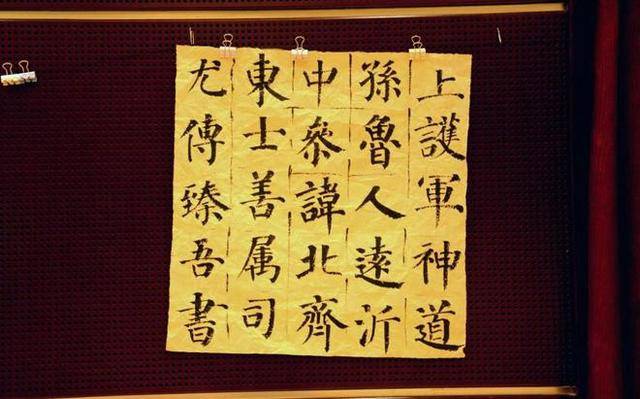 上護軍神道
孫魯人遠沂
中叅諱北齊
東士善属司
尤傳臻吾書